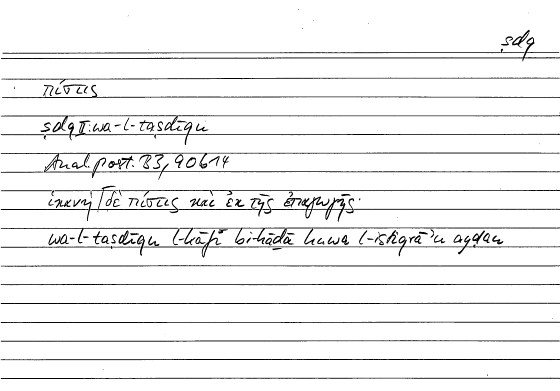 ṣdq
πίστις
ṣdq II: wa-l-taṣdīqu
Anal. post. B3, 90b14
ἱκανὴ δὲ πίστις καὶ ἐκ τῆς ἐπαγωγῆς·
wa-l-taṣdīqu l-kāfī bi-hāḏā huwa l-istiqrāʾu ayḍan